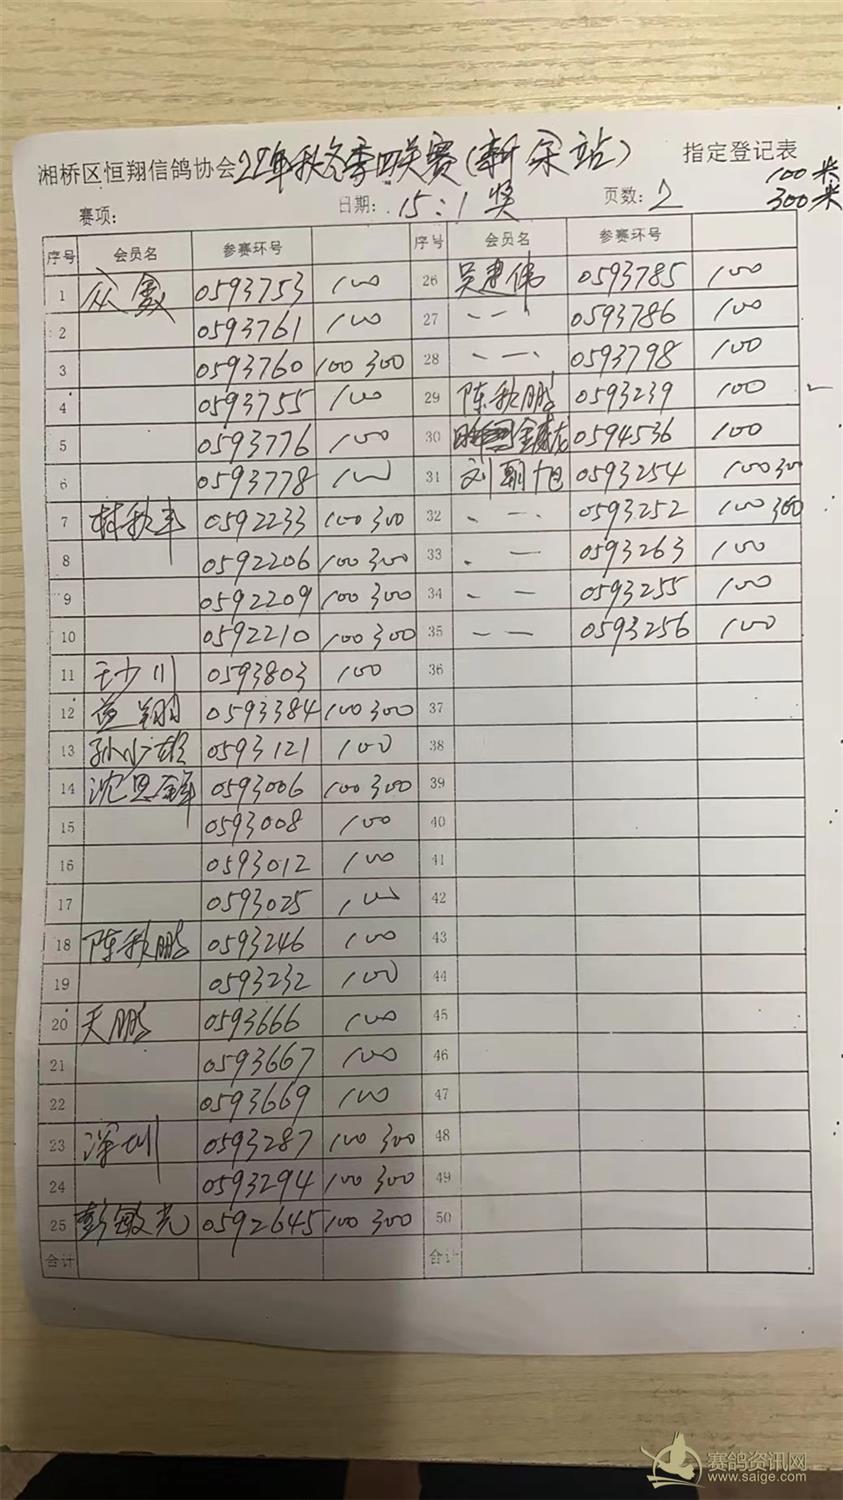 湘桥区恒翔信鸽协会22年秋冬季四关赛(新余站) 指定登记表
100米
300米
赛项: 日期: 15:1奖 页数: 2
序号 会员名 参赛环号 序号 会员名 参赛环号
1 众鑫 0593753 100 26 吴建伟 0593785 100
2 0593761 100 27 一一 0593786 100
3 0593760 100 300 28 一一 0593798 100
4 0593755 100 29 陈秋鹏 0593239 100
5 0593776 100 30 0594536 100
6 0593778 100 31 刘朝旭 0593254 100 300
7 林秋丰 0592233 100 300 32 一一 0593252 100 300
8 0592206 100 300 33 一一 0593263 100
9 0592209 100 300 34 一一 0593255 100
10 0592210 100 300 35 一一 0593256 100
11 王少川 0593803 100 36
12 益翔 0593384 100 300 37
13 孙少雄 0593121 100 38
14 沈恩 0593006 100 300 39
15 0593008 100 40
16 0593012 100 41
17 0593025 100 42
18 陈秋鹏 0593246 100 43
19 0593232 100 44
20 天鹏 0593666 100 45
21 0593667 100 46
22 0593669 100 47
23 深圳 0593287 100 300 48
24 0593294 100 300 49
25 彭敏光 0592645 100 300 50
合计 合计
赛鸽资讯网
www.saige.com